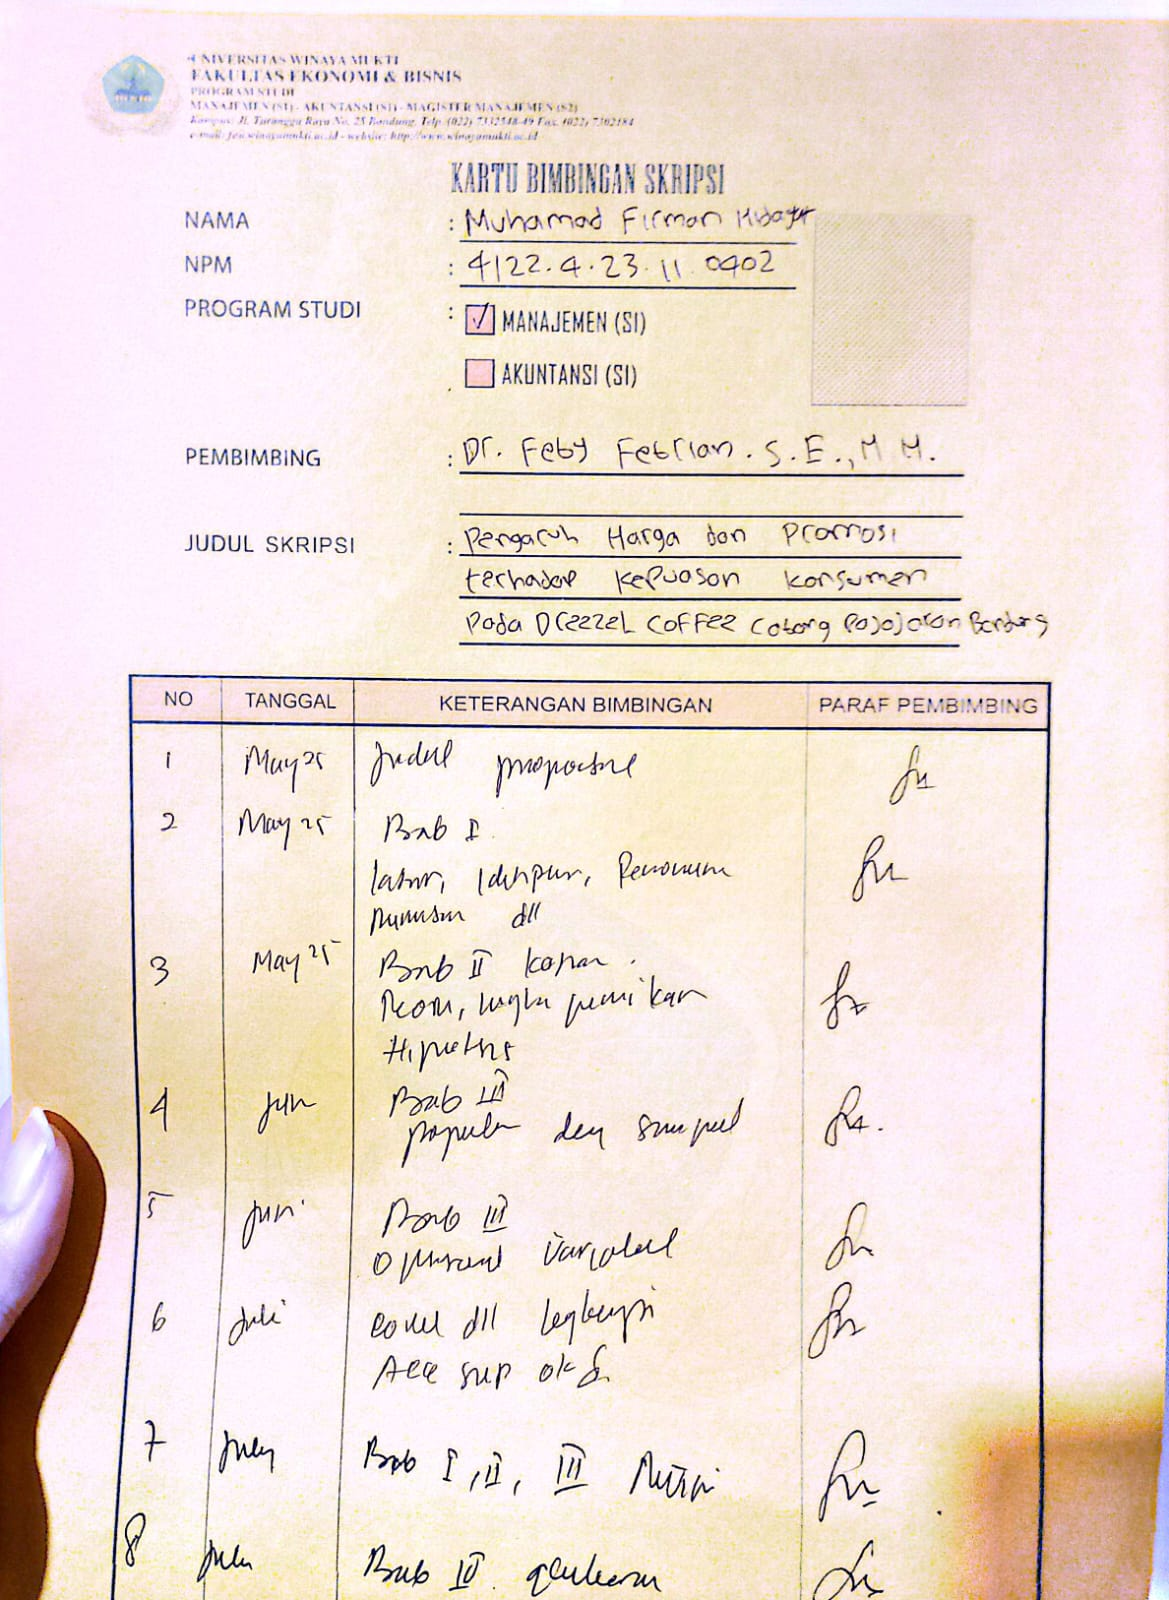 UNIVERSITAS WINAYA MUKTI
FAKULTAS EKONOMI & BISNIS
PROGRAM STUDI
MANAJEMEN (S1) - AKUNTANSI (S1) - MAGISTER MANAJEMEN (S2)
Kampus: Jl. Turangga Raya No. 25 Bandung, Telp. (022) 7332548-49 Fax. (022) 7302184
e-mail: feu.winayamukti.ac.id - website: http://www.winayamukti.ac.id
KARTU BIMBINGAN SKRIPSI
NAMA : Muhamad Firman Hidayat
NPM : 4122.4.23.11.0402
PROGRAM STUDI : MANAJEMEN (S1)
AKUNTANSI (S1)
PEMBIMBING : Dr. Feby Febrian. S.E., M M.
JUDUL SKRIPSI : Pengaruh Harga dan Promosi
terhadap kepuasan konsumen
Pada Drezzel coffee cabang Pajajaran Bandung
NO TANGGAL KETERANGAN BIMBINGAN PARAF PEMBIMBING
1 May 25 Judul proposal
2 May 25 Bab I
dll
3 May 25 Bab II
Teori, pemikiran
Hipotesis
4 Jun Bab III
populasi dan sampel
5 Juni Bab III
Operasional Variabel
6 Juli cover dll lengkapi
Acc sup ok
7 July Bab I, II, III
8 July Bab III